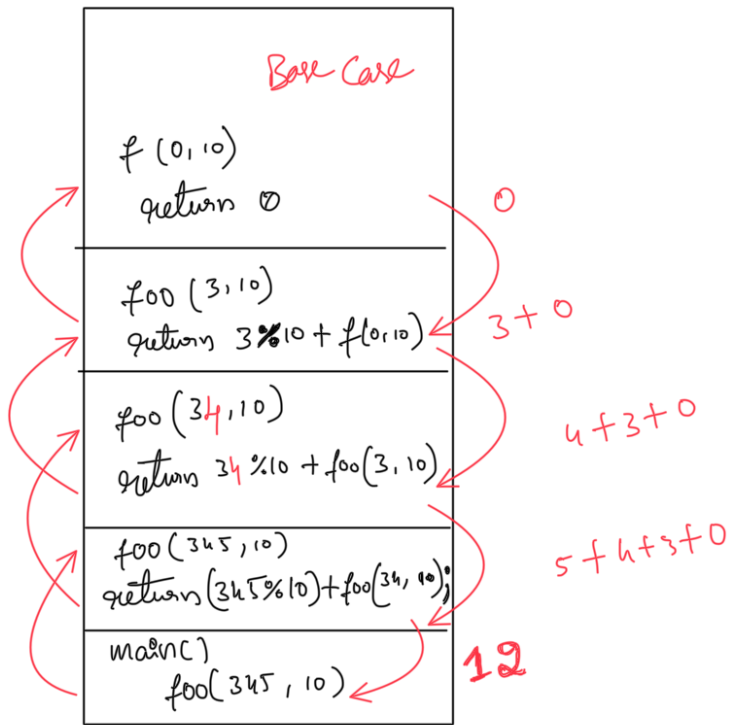 Base Case
f (0, 10)
return 0
0
foo (3, 10)
return 3%10 + f(0, 10)
3 + 0
foo (34, 10)
return 34 %10 + foo(3, 10)
4 + 3 + 0
foo (345, 10)
return (345%10) + foo(34, 10);
5 + 4 + 3 + 0
main()
foo(345, 10)
12